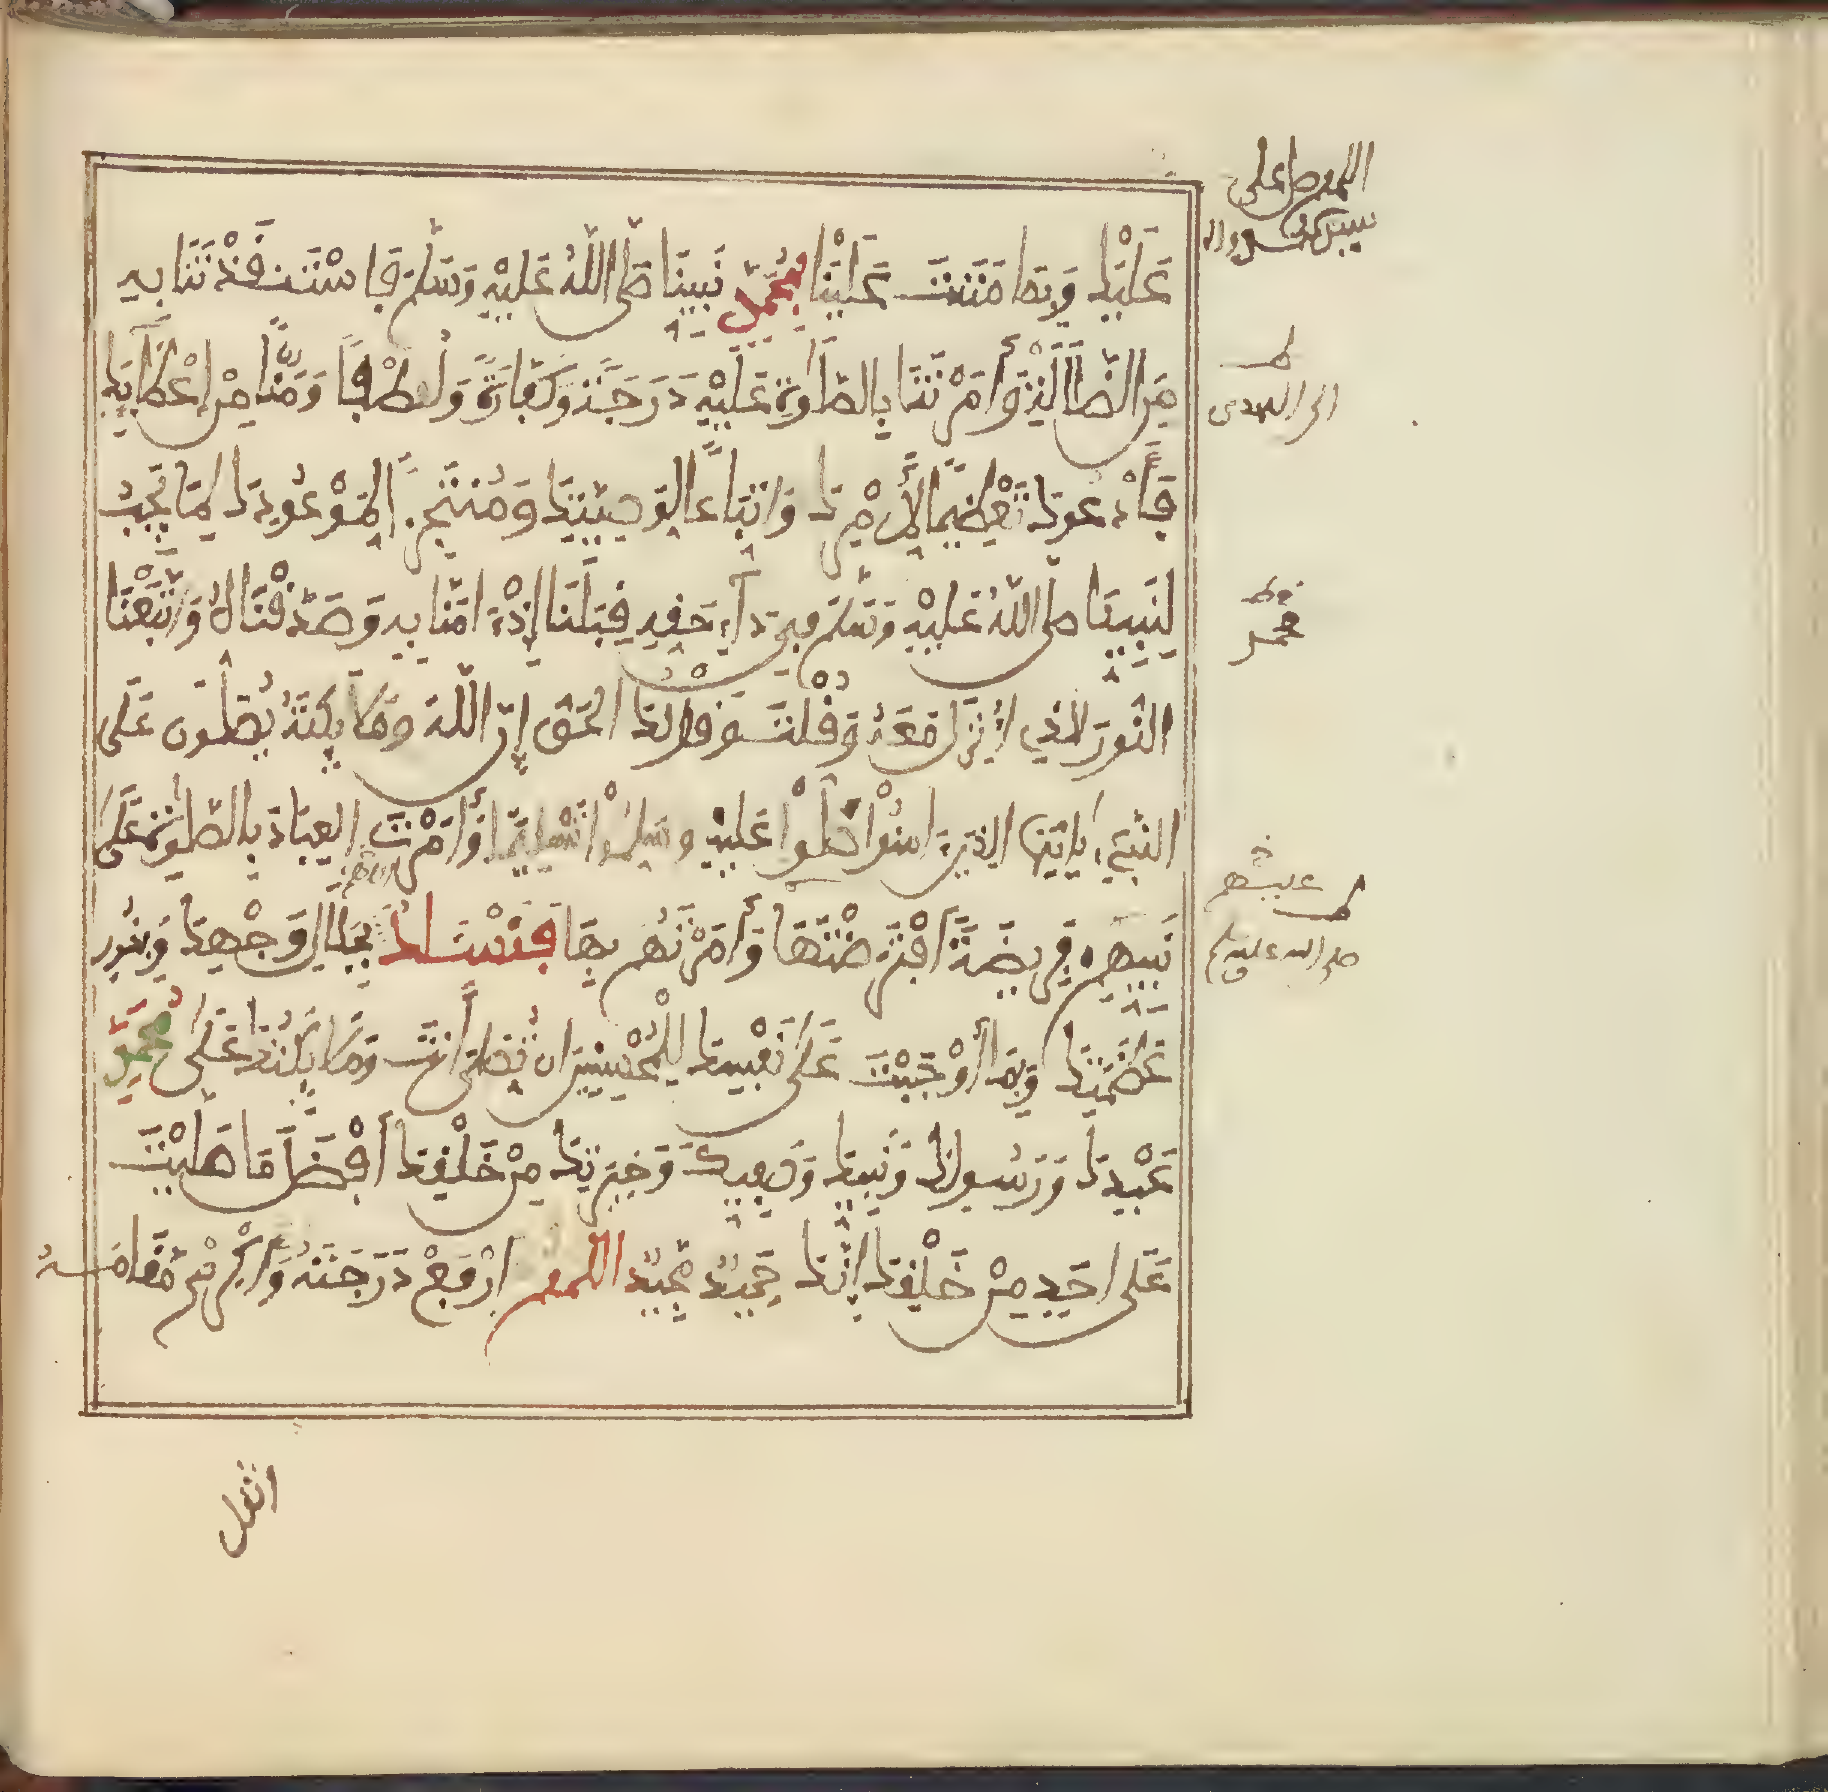 عَلَيْكَ وَبِمَا مَنَنْتَ عَلَيْنَا بِمُحَمَّدٍ نَبِيِّنَا صَلَّى اللَّهُ عَلَيْهِ وَسَلَّمَ فَاسْتَنْقَذْتَنَا بِهِ
مِنَ الضَّلَالَةِ وَأَمَرْتَنَا بِالصَّلَوٰةِ عَلَيْهِ دَرَجَةً وَكَفَّارَةً وَلُطْفًا وَمَنًّا مِنْ إِعْطَائِكَ
فَأَدْعُوكَ تَعْظِيمًا لِأَمْرِكَ وَاتِّبَاعًا لِوَصِيَّتِكَ وَمُنْتَجِزًا لِمَوْعُودِكَ لِمَا يَجِبُ
لِنَبِيِّنَا صَلَّى اللَّهُ عَلَيْهِ وَسَلَّمَ فِي أَدَاءِ حَقِّهِ قِبَلَنَا إِذْ ءَامَنَّا بِهِ وَصَدَّقْنَاهُ وَاتَّبَعْنَا
النُّورَ الَّذِي أُنْزِلَ مَعَهُ وَقُلْتَ وَقَوْلُكَ الْحَقُّ إِنَّ اللَّهَ وَمَلَائِكَتَهُ يُصَلُّونَ عَلَى
النَّبِيِّ يَا أَيُّهَا الَّذِينَ ءَامَنُوا صَلُّوا عَلَيْهِ وَسَلِّمُوا تَسْلِيمًا وَأَمَرْتَ الْعِبَادَ بِالصَّلَوٰةِ عَلَى
نَبِيِّهِمْ فَرِيضَةً افْتَرَضْتَهَا وَأَمَرْتَهُمْ بِهَا فَنَسْأَلُكَ بِجَلَالِ وَجْهِكَ وَنُورِ
عَظَمَتِكَ وَبِمَا أَوْجَبْتَ عَلَى نَفْسِكَ لِلْمُحْسِنِينَ أَنْ تُصَلِّيَ أَنْتَ وَمَلَائِكَتُكَ عَلَى مُحَمَّدٍ
عَبْدِكَ وَرَسُولِكَ وَنَبِيِّكَ وَصَفِيِّكَ وَخِيرَتِكَ مِنْ خَلْقِكَ أَفْضَلَ مَا صَلَّيْتَ
عَلَى أَحَدٍ مِنْ خَلْقِكَ إِنَّكَ حَمِيدٌ مَجِيدٌ اللَّهُمَّ ارْفَعْ دَرَجَتَهُ وَأَكْرِمْ مَقَامَهُ